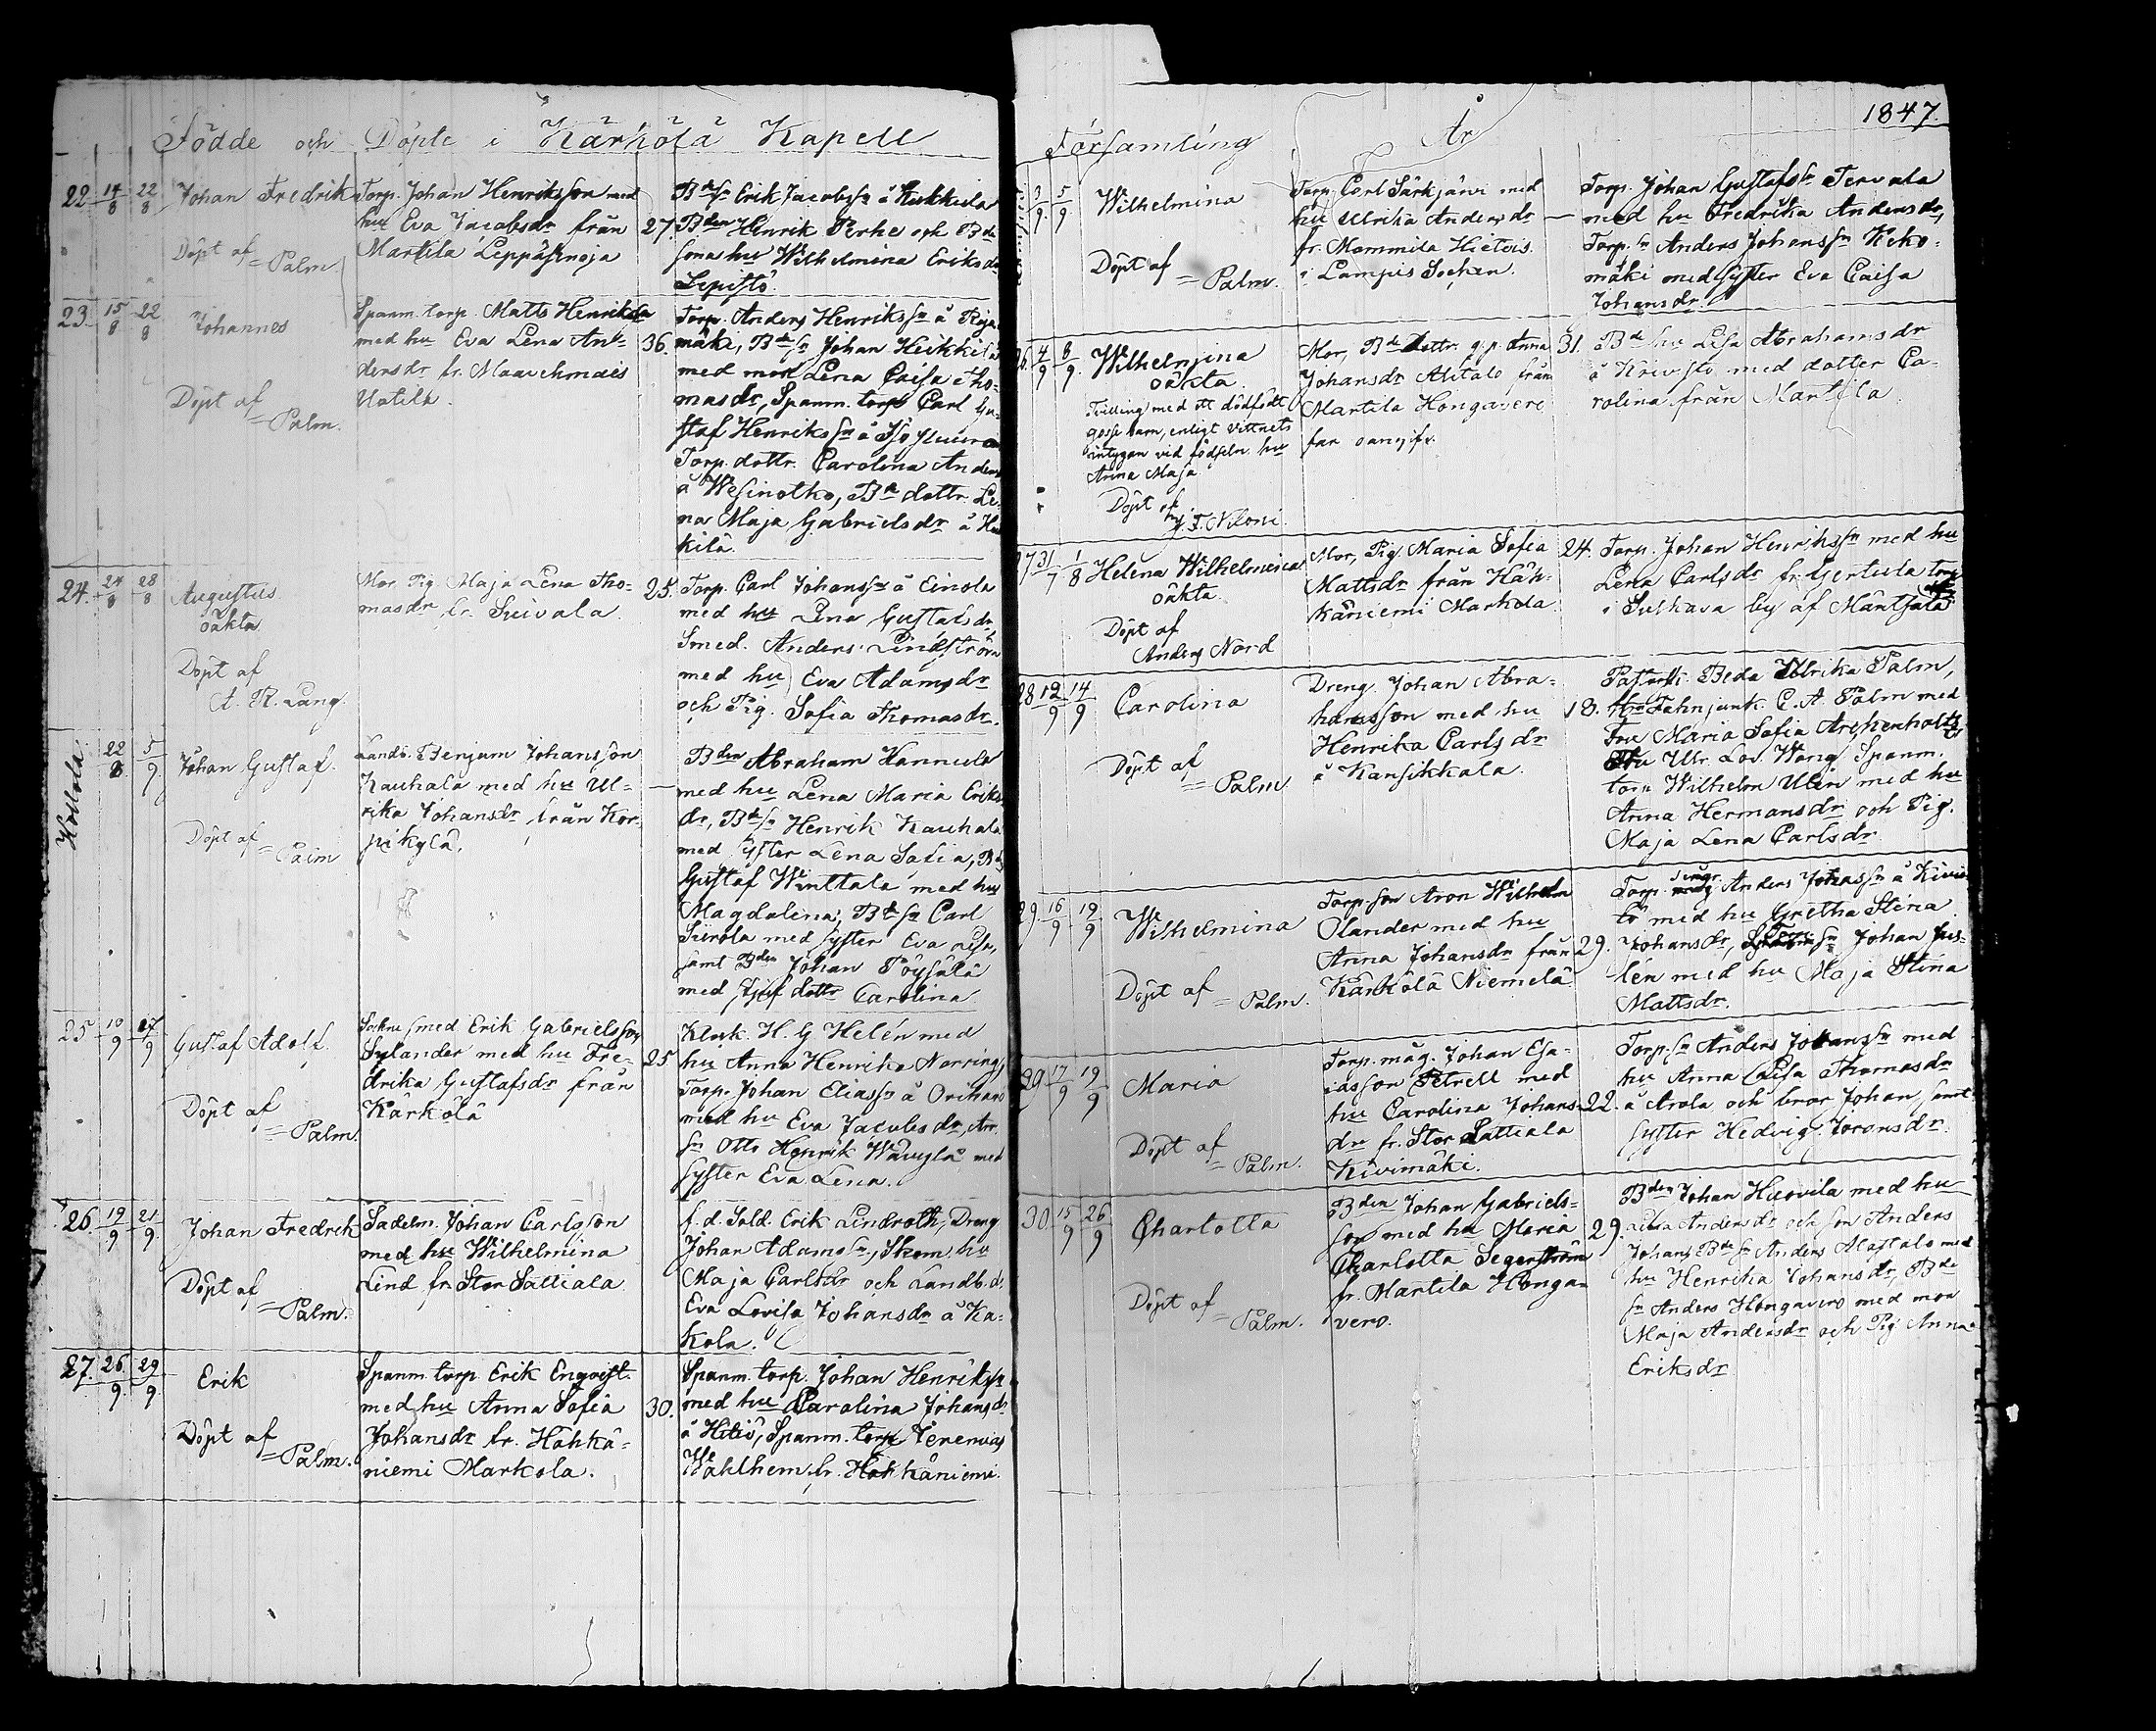 Födde och Döpte i Kärkölä Kapell
22. 14/8 22/8 Johan Fredrik
Döpt af
= Palm.
Torp. Johan Henriksson med
hu Eva Jacobsdr från
Martila Leppäsenoja
27.
Bdesn Erik Jacobssn å Hukkula
Bden Henrik Perhe och Bde
sonahu Wilhelmina Eriksdr
Sepistö.
23. 15/8 22/8 Johannes
Döpt af
= Palm.
Spanm. torp. Matts Henriksson
med hu Eva Lena An=
dersdr fr. Maavehmais
Uotila.
36.
Torp. Anders Henrikssn å
mäki, Bdesn Johan Heikkilä
med mor Lena Caisa Tho=
masdr, Spanm. torp Carl Gu=
staf Henrikssn å
Torp. dottr. Carolina Anders
å Wesinotko, Bde dottr. Le=
na Maja Gabrielsdr å
kilä.
24. 24/8 28/8 Augustus
oäkta
Döpt af
A. R. Lang.
Mor Pig. Maja Lena Tho=
masdr fr. Suivala.
25.
Torp. Carl Johanssn å Einola
med hu Lena Gustafsdr
Smed. Anders Lindström
med hu Eva Adamsdr
och Pig. Sofia Thomasdr.
Koskola
22/8 5/9 Johan Gustaf.
Döpt af
= Palm
Landb. Benjam Johansson
Kauhala med hu Ul=
rika Johansdr från Kor=
pikylä.
Bden Abraham Hannula
med hu Lena Maria Eriks
dr, Bdesn Henrik Kauhala
med syster Lena Sofia, Bd
Gustaf Winttala med hu
Magdalina, Bdesn Carl
Siirola med syster Eva Lisa,
samt Bden Johan Töysälä
med styf dottr Carolina
25 10/9 17/9 Gustaf Adolf.
Döpt af
= Palm.
Sockne smed Erik Gabrielsson
Sylander med hu Fre=
drika Gustafsdr från
Kärkölä
25
Klok. H. G Helén med
hu Anna Henrika Norring,
Torp. Johan Eliassn å Oriharo
med hu Eva Jacobsdr, Arr.
sn Otto Henrik Wäwylä med
syster Eva Lena.
26. 19/9 21/9 Johan Fredrik
Döpt af
= Palm.
Sadelm. Johan Carlsson
med hu Wilhelmina
Lind fr. Stor Sattiala
f. d. Sold. Erik Lindroth, Dreng
Johan Adamssn, Skom. hu
Maja Carlsdr och Landb. d.
Eva Lovisa Johansdr å Ka=
kola.
27. 26/9 29/9 Erik
Döpt af
= Palm.
Spanm. torp. Erik Enqvist
med hu Anna Sofia
Johansdr fr. Hähkä=
niemi Markola.
30.
Spanm. torp. Johan Henrikssn
med hu Carolina Johansdr
å Hitiö, Spanm. torp Jeremias
Wahlhem fr. Hähkäniemi.
Församling År 1847.
3/9 5/9 Wilhelmina
Döpt af
= Palm.
Torp. Carl Särkjärvi med
hu Ulrika Andersdr
fr. Mommila Hietois
i Lampis Sochen.
Torp. Johan Gustafssn Tervala
med hu Fredrika Andersdr,
Torp. sn Anders Johanssn Keko=
mäki med syster Eva Caisa
Johansdr
26. 4/9 8/9 Wilhelmina
oäkta.
Tvilling med ett dödfödt
gosse barn, enligt vittnets
intygan vid födseln hu
Anna Maja
Döpt af
J. F. Niloni.
Mor, Bde dottr. g. p. Anna
Johansdr Alitalo från
Martila Hongavero
far oangifv.
31.
Bde hu Lisa Abrahamsdr
å Knivsto med dotter Ca=
rolina från Martila.
27 31/7 1/8 Helena Wilhelmina
oäkta.
Döpt af
Anders Nord
Mor, Pig. Maria Sofia
Mattsdr från Häh=
käniemi Markola
24.
Torp. Johan Henrikssn med hu
Lena Carlsdr fr. Gertula torp
i Sulkava by af Mäntsälä
28 12/9 14/9 Carolina
Döpt af
= Palm
Dreng. Johan Abra=
hamsson med hu
Henrika Carlsdr
å Kansikkala.
18.
Pastorsk. Beda Ulrika Palm,
Hr Fahnjunk. C. A. Palm med
Fru Maria Sofia Archenholtz
Ulr. Lov. Wong Spanm.
torp Wilhelm Ulin med hu
Anna Hermansdr och Pig.
Maja Lena Carlsdr
29. 16/9 19/9 Wilhelmina
Döpt af
= Palm.
Torp. son Aron Wilhelm
Olander med hu
Anna Johansdr från
Kärkölä Niemelä
29.
Torp. Anders Johanssn å Kivis
tö med hu Gretha Stina
Johansdr, Torp. sn Johan Jus=
lén med hu Maja Stina
Mattsdr.
29 17/9 19/9 Maria
Döpt af
= Palm.
Torp. måg. Johan Esa=
iasson Petrell med
hu Carolina Johans=
dr fr. Stor Sattiala
Kivimäki.
22.
Torp. sn Anders Johanssn med
hu Anna Lisa Thomasdr
å Arola och bror Johan samt
syster Hedvig Joronsdr.
30. 15/9 26/9 Charlotta
Döpt af
= Palm.
Bden Johan Gabriels=
son med hu Maria
Charlotta Segerström
fr. Martila Honga=
vero.
29.
Bden Johan Huovila med hu
Andersdr och son Anders
Johans, Bdesn Anders Alastalo med
hu Henrika Johansdr, Bde
sn Anders Hongavero med mor
Maja Andersdr och Pig Anna
Eriksdr